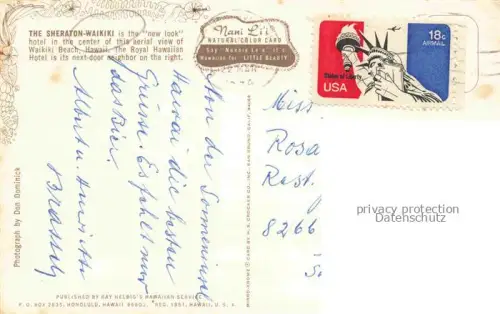 THE SHERATON-WAIKIKI is the "new look"
hotel in the center of this aerial view of
Waikiki Beach, Hawaii. The Royal Hawaiian
Hotel is its next-door neighbor on the right.
Nani Li'i
NATURAL COLOR CARD
Say "Nannie Lee", it's
Hawaiian for LITTLE BEAUTY
18c
AIRMAIL
Statue of Liberty
USA
Von der Sonneninsel
Hawai die besten
Grüsse. Es fehlt nur
das Bier.
Albert u.
Miss
Rosa
Rest.
8266
privacy protection
Datenschutz
Photograph by Dan Dominick
PUBLISHED BY RAY HELBIG'S HAWAIIAN SERVICE
P. O. BOX 2835, HONOLULU, HAWAII 96803, REG. 1951, HAWAII, U. S. A.